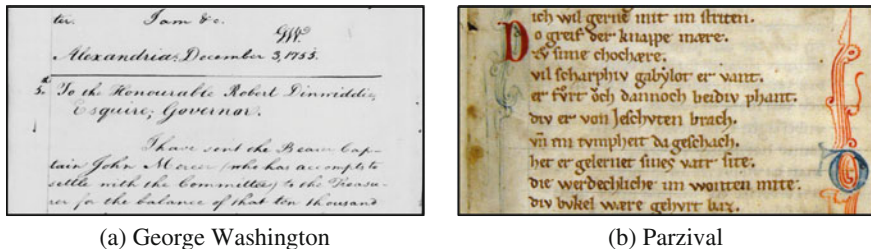 ter. I am &c.
GW.
Alexandria, December 3, 1755.
5. To the Honourable Robert Dinwiddie,
Esquire; Governor.
I have sent the Bearer Cap-
tain John Mercer (who has accompts to
settle with the Committee) to the Treasu-
rer for the balance of that ten thousand
(a) George Washington
ich wil gerne mit im striten.
Do greif der knappe mære.
zv sime chochære.
vil scharphiv gabylot er vant.
er fvrt och dannoch beidiv phant.
div er von Jeschvten brach.
vn̄ ein tvmpheit da geschach.
het er gelernet sines vatr site.
die werdechliche im wonten mite.
div bvkel wære gehvrt baz.
(b) Parzival